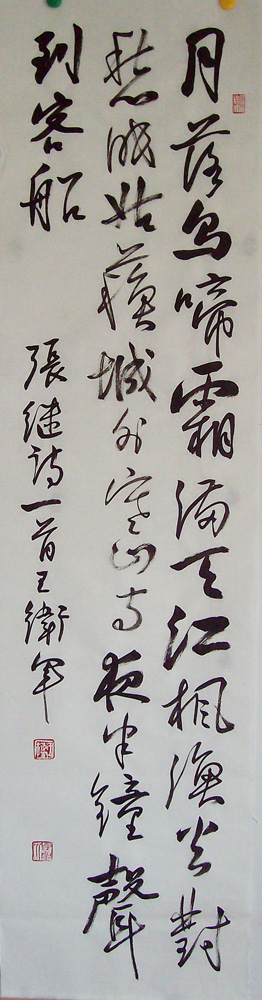 月落烏啼霜滿天江楓漁火對
愁眠姑蘇城外寒山寺夜半鐘聲
到客船
張继詩一首王衛軍